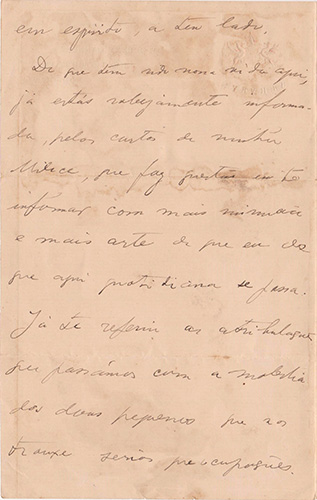 em espirito, a teu lado.
De que têm sido nossa vida aqui,
já estás informa-
da, pelas cartas de minha
que faz questão em te
informar com mais
e mais arte do que eu do
que aqui quotidiana se passa.
Já te referiu as atribulações
que passámos com a molestia
dos dous pequenos que nos
trouxe serias preocupações.